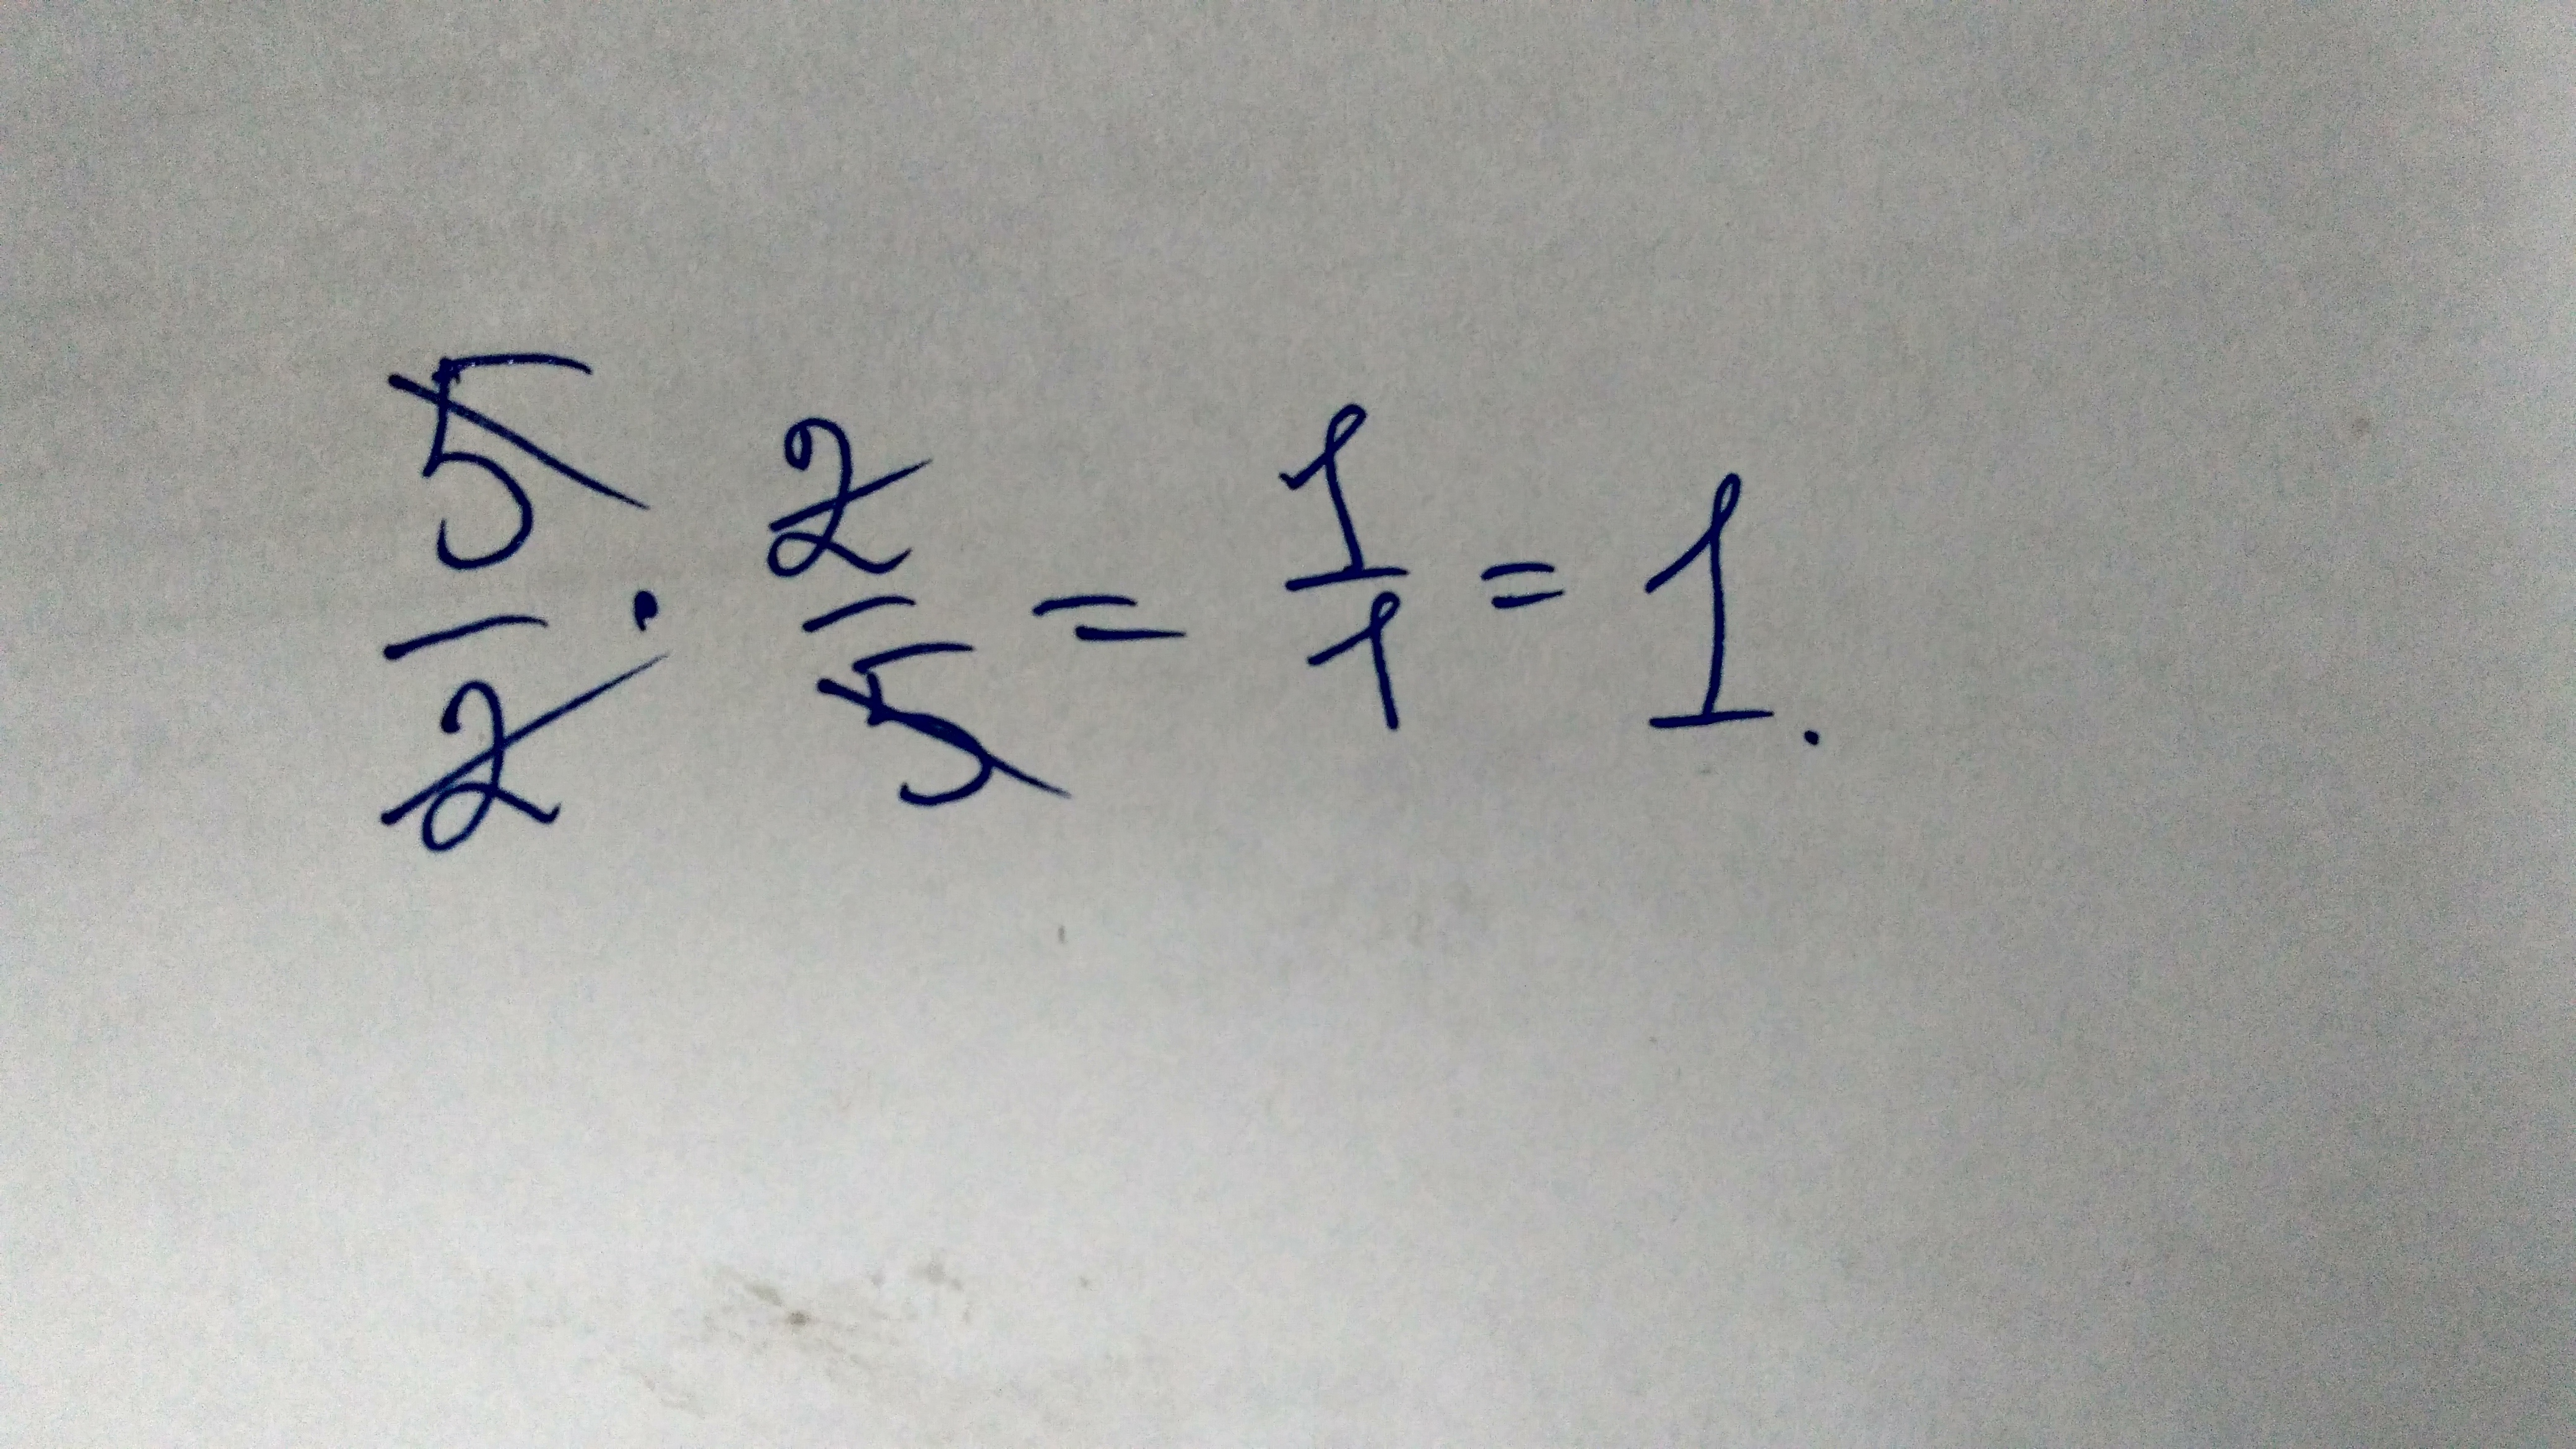 5/2 · 2/5 = 1/1 = 1.